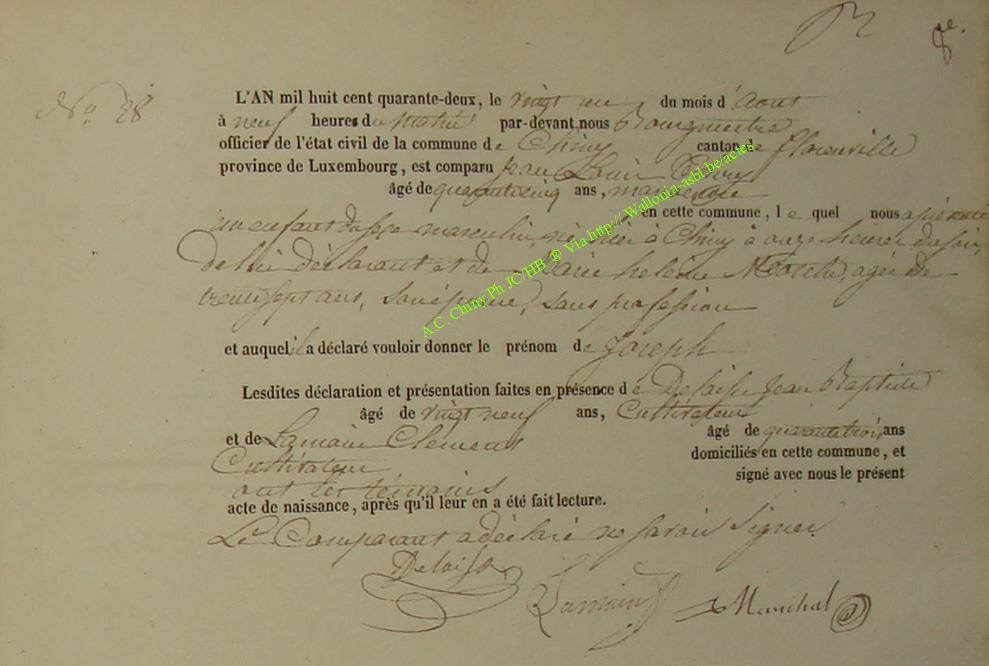 8e.
No 28
L'AN mil huit cent quarante-deux, le vingt un du mois d'août
à neuf heures du matin par-devant nous Bourgmestre
officier de l'état civil de la commune de Chiny canton de florenville
province de Luxembourg, est comparu Jean Louis
âgé de quarante cinq ans,
en cette commune, le quel nous a présenté
un enfant du sexe masculin, né hier à Chiny à onze heures du soir,
de lui déclarant et de Marie helene agée de
trente sept ans, son épouse, sans profession
et auquel il a déclaré vouloir donner le prénom de Joseph
Lesdites déclaration et présentation faites en présence de Jean Baptiste
âgé de vingt neuf ans, Cultivateur
et de Lamain Clement âgé de quarante trois ans
Cultivateur domiciliés en cette commune, et
ont les témoins signé avec nous le présent
acte de naissance, après qu'il leur en a été fait lecture.
Le Comparant a déclaré ne savoir signer.
Lamain Maréchal
A.C. Chiny Ph JC/HB ® Via http// Wallonia-asbl.be/actes